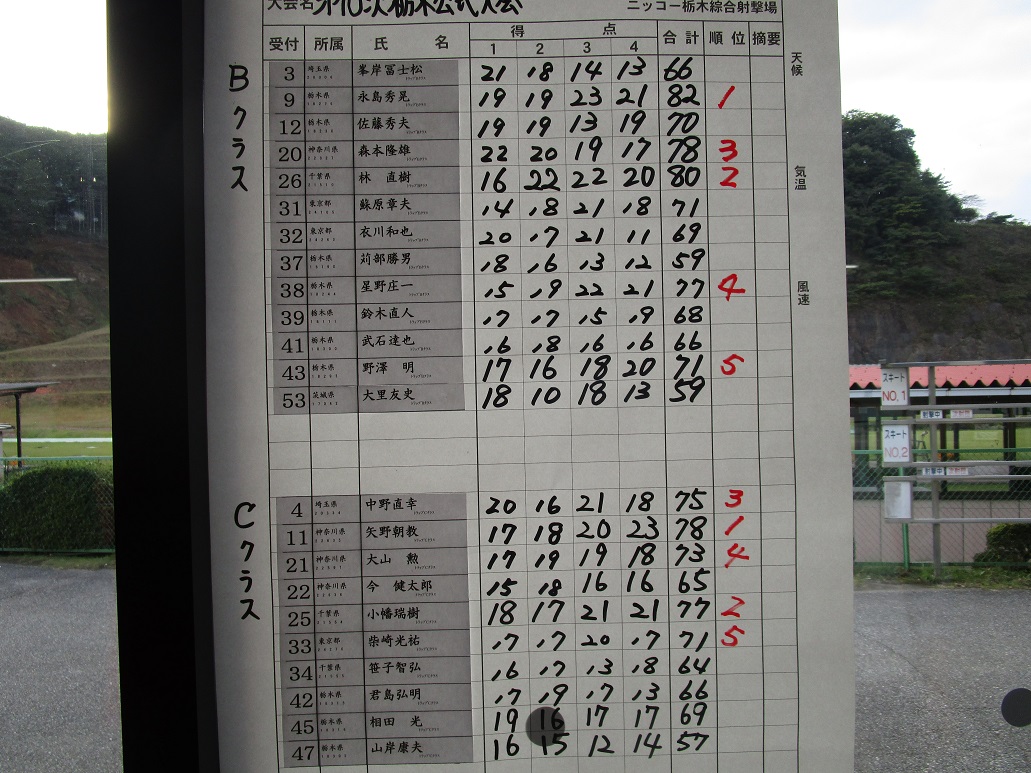 大会名 第10次栃木公式大会 ニッコー栃木綜合射撃場
受付 所属 氏 名 得 点 合計 順位 摘要
1 2 3 4
天候
Bクラス
3 埼玉県 峯岸冨士松 21 18 14 13 66
9 栃木県 永島秀晃 19 19 23 21 82 1
12 栃木県 佐藤秀夫 19 19 13 19 70
20 神奈川県 森本隆雄 22 20 19 17 78 3
気温
26 千葉県 林 直樹 16 22 22 20 80 2
31 東京都 蘇原章夫 14 18 21 18 71
32 東京都 衣川和也 20 17 21 11 69
37 栃木県 苅部勝男 18 16 13 12 59
風速
38 栃木県 星野庄一 15 19 22 21 77 4
39 栃木県 鈴木直人 17 17 15 19 68
41 栃木県 武石達也 16 18 16 16 66
43 栃木県 野澤 明 17 16 18 20 71 5
53 茨城県 大里友史 18 10 18 13 59
Cクラス
4 埼玉県 中野直幸 20 16 21 18 75 3
11 神奈川県 矢野朝教 17 18 20 23 78 1
21 神奈川県 大山 勲 17 19 19 18 73 4
22 神奈川県 今 健太郎 15 18 16 16 65
25 千葉県 小幡瑞樹 18 17 21 21 77 2
33 東京都 柴崎光祐 17 17 20 17 71 5
34 千葉県 笹子智弘 16 17 13 18 64
42 栃木県 君島弘明 17 19 17 13 66
45 栃木県 相田 光 19 16 17 17 69
47 栃木県 山岸康夫 16 15 12 14 57
スキート
NO,1
射撃中
スキート
NO.2
射撃中